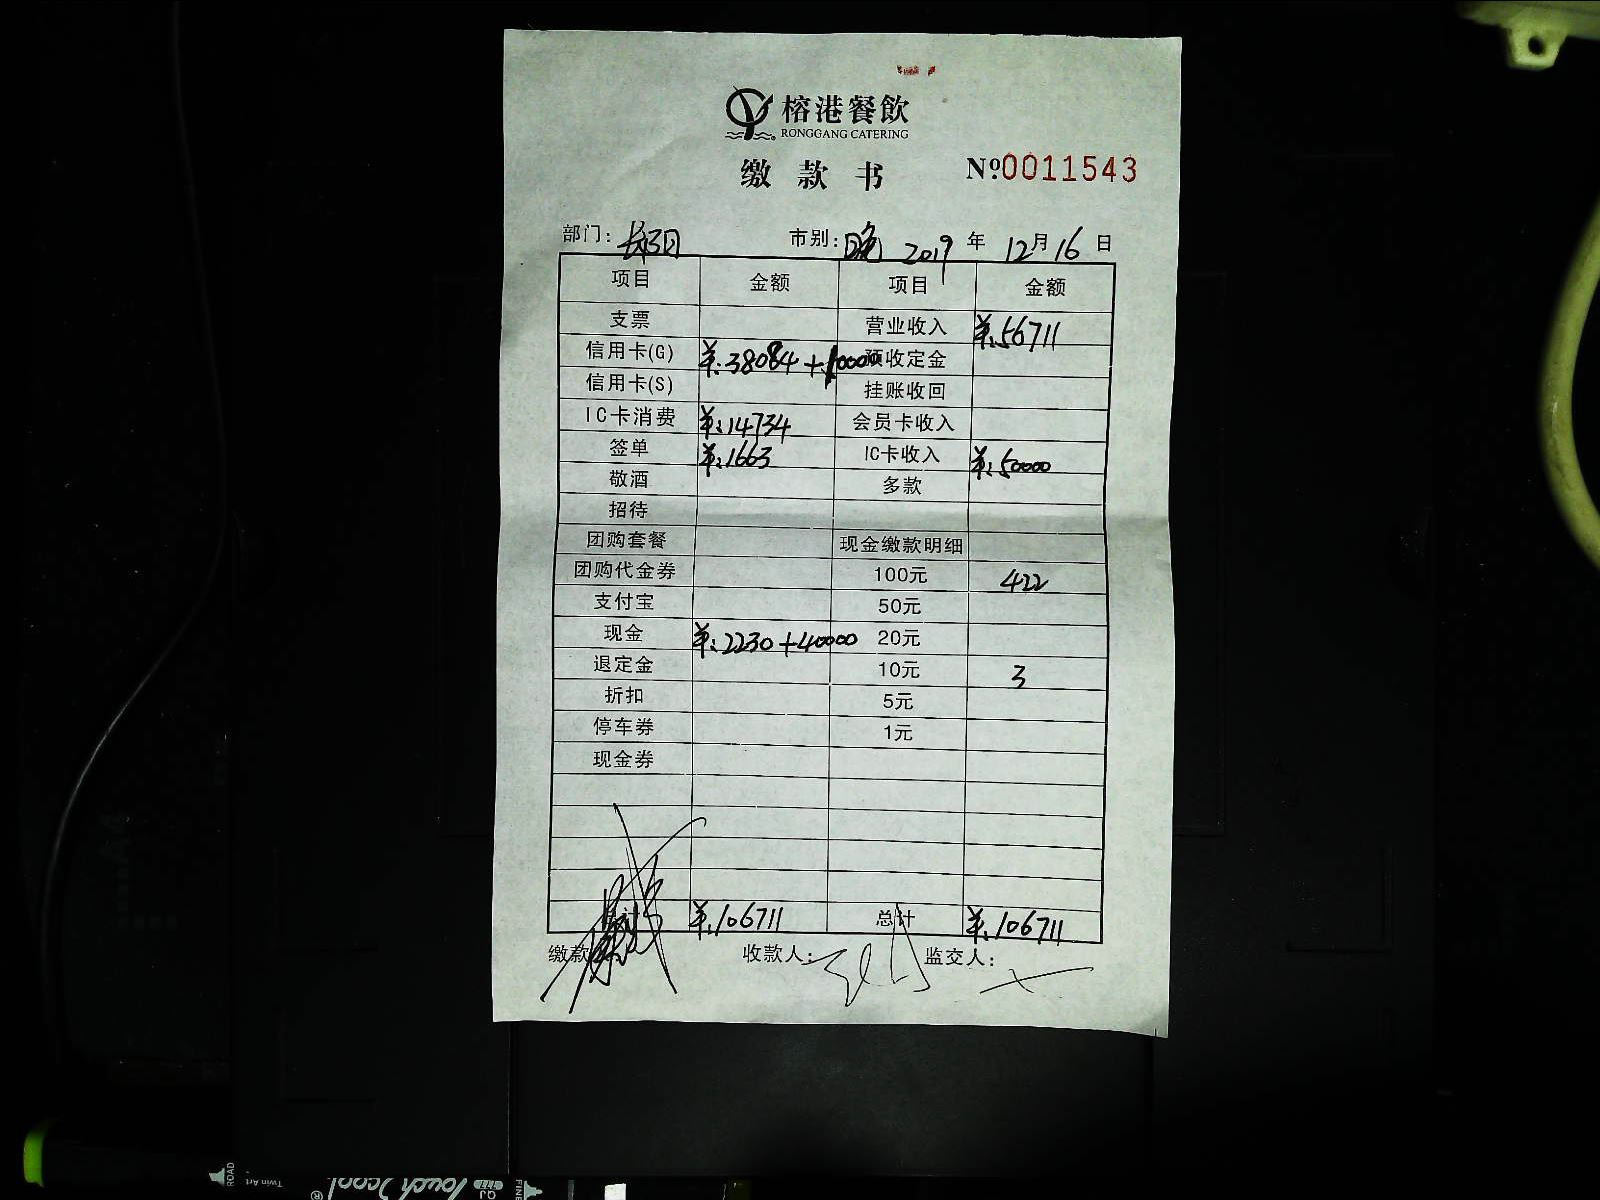 榕港餐飲
RONGGANG CATERING
缴款书 №0011543
部门: 市别:晚 2019年12月16日
项目 金额 项目 金额
支票 营业收入 ¥:56711
信用卡(G) ¥:38084+10000 预收定金
信用卡(S) 挂账收回
IC卡消费 ¥:14734 会员卡收入
签单 ¥:1663 IC卡收入 ¥:50000
敬酒 多款
招待
团购套餐 现金缴款明细
团购代金券 100元 422
支付宝 50元
现金 ¥:2230+40000 20元
退定金 10元 3
折扣 5元
停车券 1元
现金券
¥:106711 总计 ¥:106711
缴款 收款人: 监交人:
ROAD
Twin Art
®
Touch 2cool